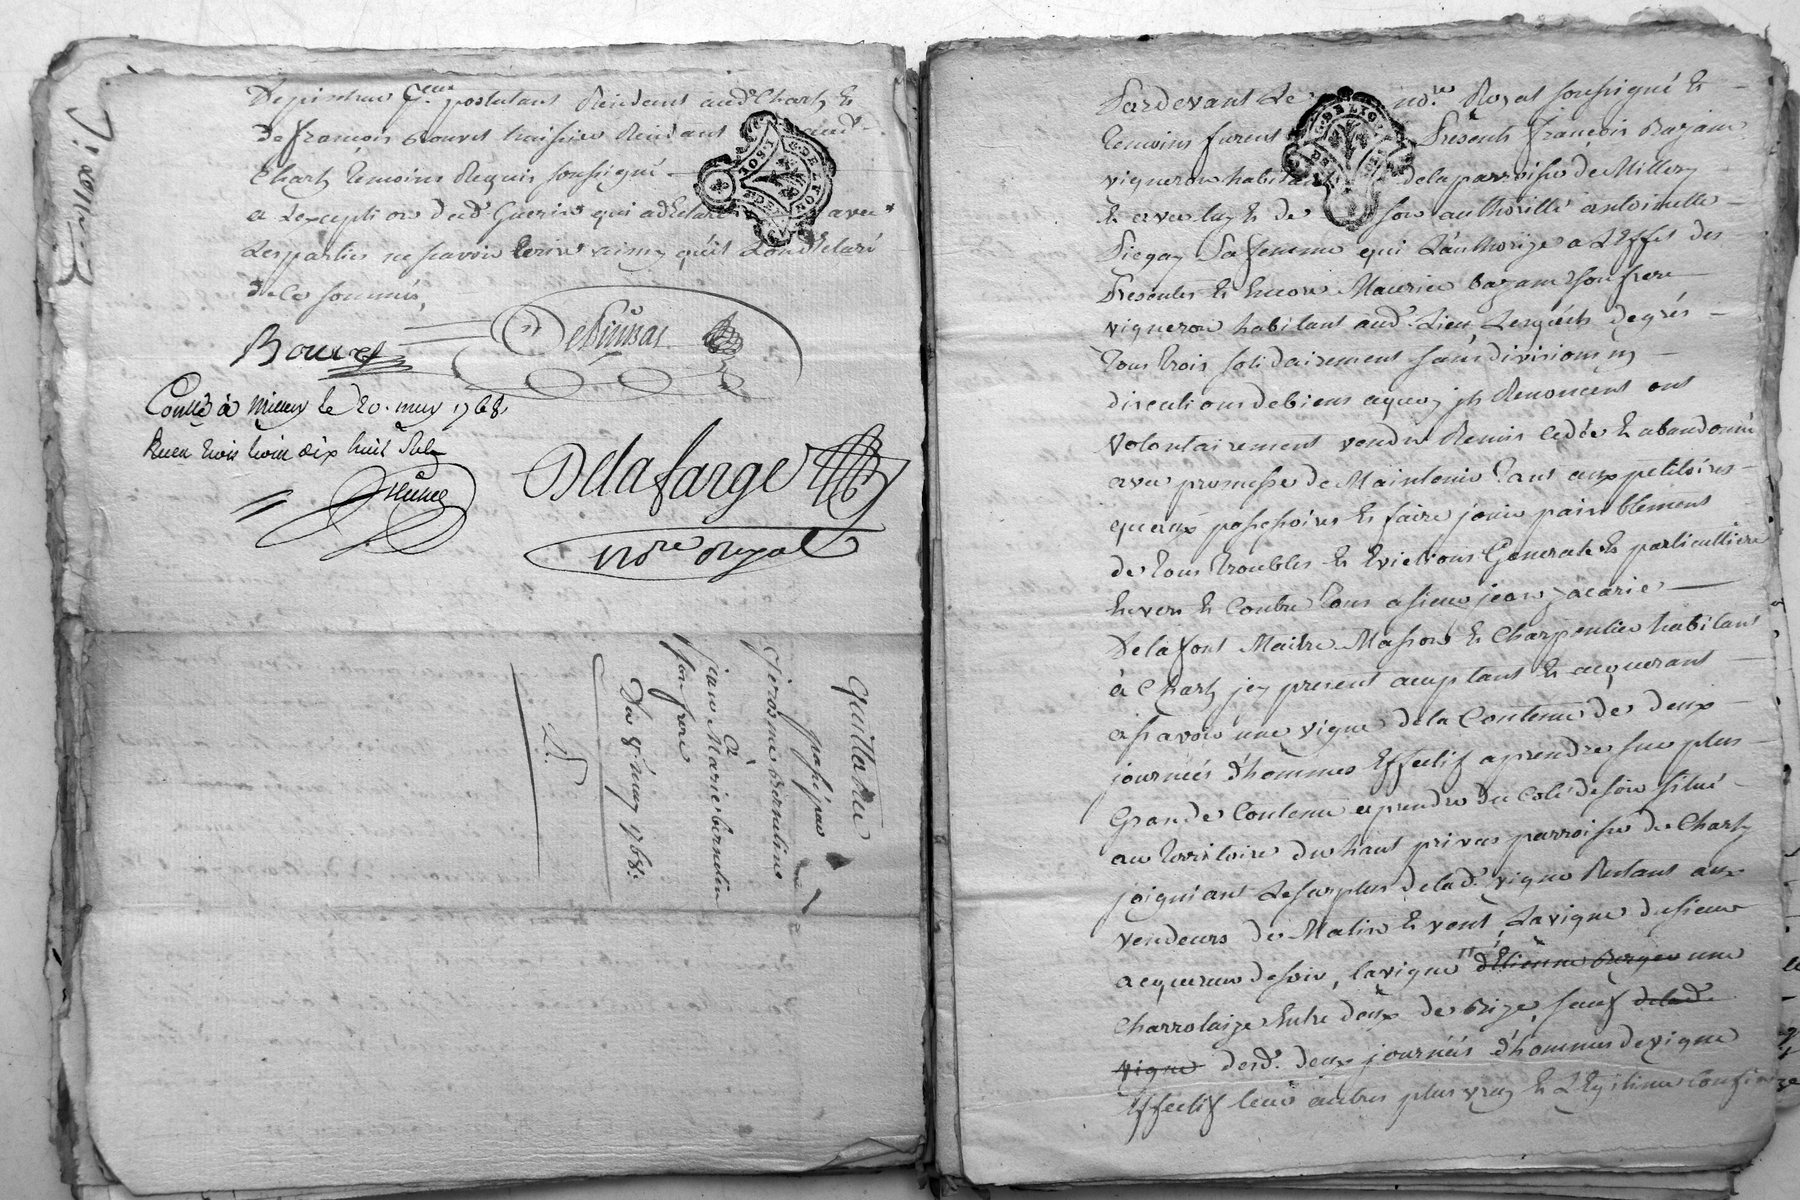 postulant Residant aud. Charly &
De françois Bouvet huissier Residant aud.
Charly temoins Requis soussigné
a Lexception dud. Guerin qui a declaré avec
Les parties ne scavoir Ecrire
de ce sommés,
Bouvet
Depinnat
Conllé à Millery le 20. may 1768
Delafarge
nore Royal
quittance
passé par
Jerosme bernelin
a
jean Marie bernelin
son frere
Du 8. may 1768:
Pardevant Le Royal soussigné &
temoins furent Presents françois Bazam
vigneron habitant dela parroisse de Millery
& avec luy & de son authorité antoinette
Piegay Sa femme qui Lauthorize a Leffet des
Presentes & Encore Maurice bazam son frere
vigneron habitant aud. Lieu Lesquels de grés
tous trois solidairement sans division ny
discutions de biens a quoy ils Renoncent ont
volontairement vendu Remis cedée & abandonné
avec promesse de Maintenir tant aux petitoires
queaux possessoires & faire jouir paisiblement
de tous troubles & Evictions Generale & particulliere
Envers & Contre tous a sieur jean zacarie
Delafont Maitre Masson & Charpentier habitant
à Charly jcy present acceptant & acquerant
asçavoir une vigne dela Contenue de deux
journées d'hommes Effectif a prendre sur plus
Grande Contenue a prendre du coté de soir situé
au territoire du haut privas parroisse de Charly
joignant Le surplus de lad. vigne Restant aux
vendeurs de Matin & vent, La vigne du sieur
acquereur de soir, la vigne d'Etienne Berger une
Charrolaize Entre deux de Bize, sauf de lad.
vigne desd. deux journées d'hommes de vigne
Effectif leurs autres plus vray & Legitime Confins